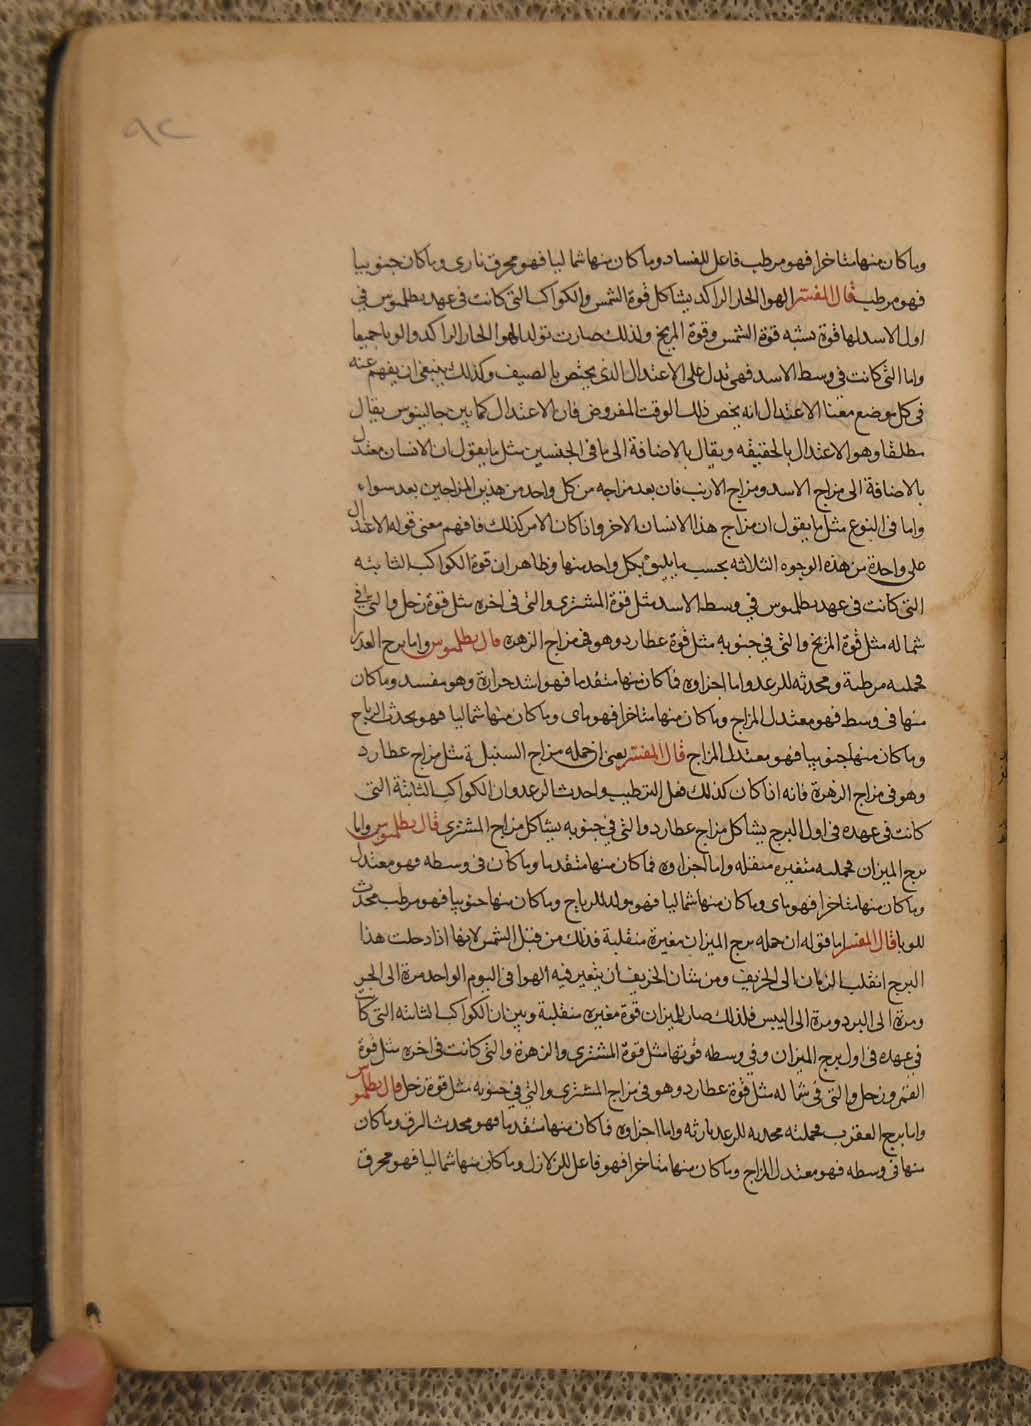 ٩٢
وما كان منها متاخرا فهو مرطب فاعل للفساد وما كان منها شماليا فهو محرق نارى وما كان جنوبيا
فهو مرطب قال المفسر الهوا الحار الراكد يشاكل قوة الشمس والكواكب التى كانت فى عهد بطلميوس فى
اول الاسد لها قوة تشبه قوة الشمس وقوة المريخ ولذلك صارت تولد الهوا الحار الراكد والوبا جميعا
واما التى كانت فى وسط الاسد فهى تدل على الاعتدال الذى يختص بالصيف وكذلك ينبغى ان يفهم عنه
فى كل موضع معنا الاعتدال انه يخص ذلك الوقت المفروض فان الاعتدال كما بين جالينوس يقال
مطلقا وهو الاعتدال بالحقيقه ويقال بالاضافة الى ما فى الجنسين مثل ما يقول ان الانسان معتدل
بالاضافة الى مزاج الاسد ومزاج الارنب فان بعد مزاجه من كل واحد من هذين المزاجين بعد سواء
واما فى النوع مثل ما يقول ان مزاج هذا الانسان الاخر واذا كان الامر كذلك فافهم معنى قوله الاعتدال
على واحدة من هذه الوجوه الثلاثه بحسب ما يليق بكل واحد منها وظاهر ان قوة الكواكب الثابته
التى كانت فى عهد بطلميوس فى وسط الاسد مثل قوة المشترى والتى فى اخره مثل قوة زحل والتى فى
شماله مثل قوة المريخ والتى فى جنوبه مثل قوة عطارد وهو فى مزاج الزهره قال بطلميوس واما برج العذرا
فجملته مرطبة ومحدثه للرعد واما اجزاوه فما كان منها متقدما فهو اشد حرارة وهو مفسد وما كان
منها فى وسط فهو معتدل المزاج وما كان منها متاخرا فهو ماى وما كان منها شماليا فهو يحدث الرياح
وما كان منها جنوبيا فهو معتدل المزاج قال المفسر يعنى ان جمله مزاج السنبلة مثل مزاج عطارد
وهو فى مزاج الزهرة فانه اذا كان كذلك فعل الترطيب واحدث الرعد وان الكواكب الثابتة التى
كانت فى عهده فى اول البرج يشاكل مزاج عطارد والتى فى جنوبه يشاكل مزاج المشترى قال بطلميوس واما
برج الميزان فجملته متغيره منقلبه واما اجزاوه فما كان منها متقدما وما كان فى وسطه فهو معتدل
وما كان منها متاخرا فهو ماى وما كان منها شماليا فهو مولد للرياح وما كان منها جنوبيا فهو مرطب محدث
للوبا قال المفسر اما قوله ان جمله برج الميزان مغيرة منقلبة فذلك من قبل الشمس لانها اذا دخلت هذا
البرج انقلب الزمان الى الخريف ومن شان الخريف ان يتغير فيه الهوا فى اليوم الواحد مرة الى الحر
ومرة الى البرد ومرة الى اليبس فلذلك صار للميزان قوة مغيره منقلبة وبين ان الكواكب الثابته التى كانت
فى عهده فى اول برج الميزان وفى وسطه قوتها مثل قوة المشترى والزهرة والتى كانت فى اخره مثل قوة
القمر وزحل والتى فى شماله مثل قوة عطارد وهو فى مزاج المشترى والتى فى جنوبه مثل قوة زحل قال بطلميوس
واما برج العقرب فجملته محدثه للرعد نارئه واما اجزاوه فما كان منها متقدما فهو محدث الرق وما كان
منها فى وسطه فهو معتدل المزاج وما كان منها متاخرا فهو فاعل للزلازل وما كان منها شماليا فهو محرق